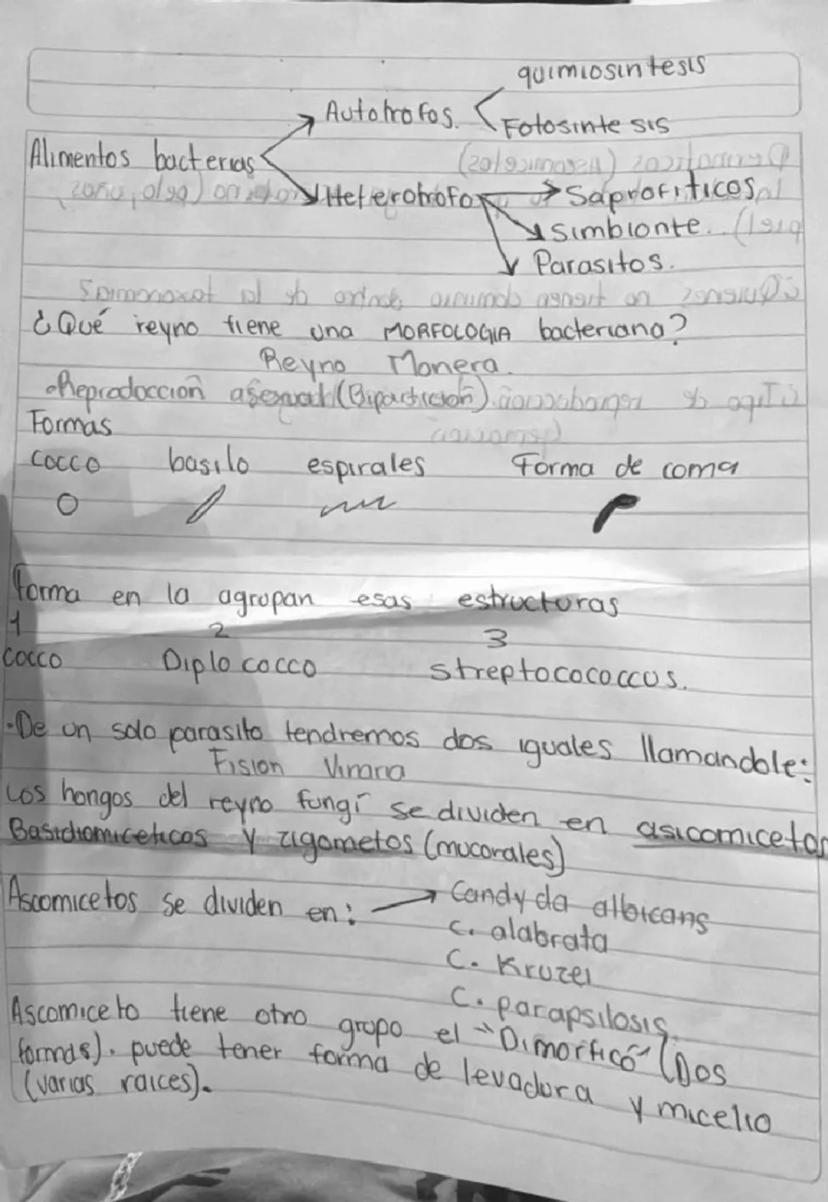 quimiosintesis
Autotrofos.
Fotosintesis
Alimentos bacterias
Heterotrofo
Saprofiticos.
Simbionte.
Parasitos.
¿Qué reyno tiene una MORFOLOGIA bacteriana?
Reyno Monera.
Reprodoccion asexual (Bipartición).
Formas
cocco basilo espirales Forma de coma
Forma en la agrupan esas estructuras
1 2 3
cocco Diplococco streptocococcus.
·De un solo parasito tendremos dos iguales llamandole:
Fision Vinaria
Los hongos del reyno fungi se dividen en asicomicetos
Basidiomiceticos y zigometos (mucorales)
Ascomicetos se dividen en: Candyda albicans
C. alabrata
C. Kruzei
C. parapsilosis
Ascomiceto tiene otro grupo el "Dimorfico" (Dos
formas). puede tener forma de levadura y micelio
(varias raices).